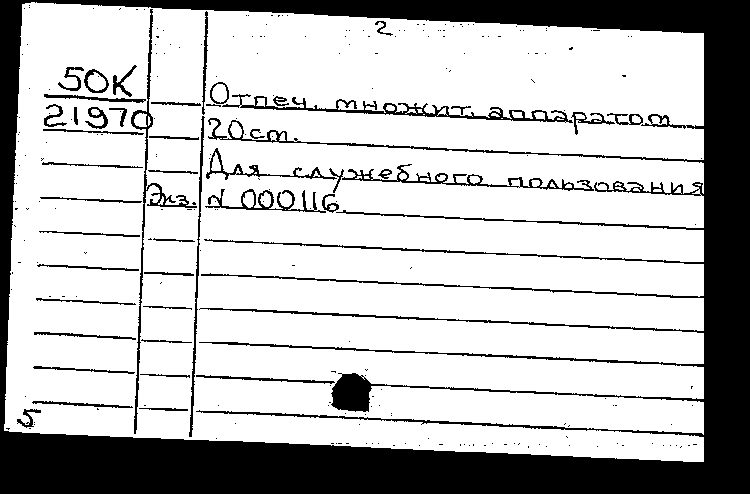 2
50К
21970
Отпеч. множит. аппаратом
20 см.
Для служебного пользования
Экз. N 000116.
5